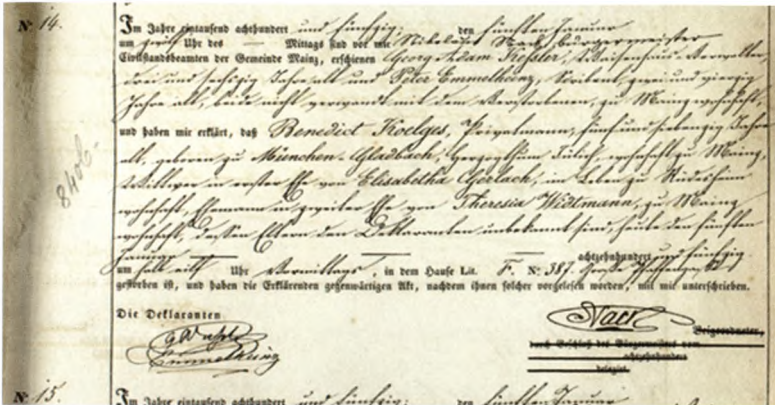 N: 14.
Im Jahre eintausend achthundert und fünfzig, den fünften Januar
um zwölf Uhr des — Mittags sind vor mir Nikolaus Nack, Bürgermeister
Civilstandsbeamten der Gemeinde Mainz, erschienen Georg Adam Keßler, Waisenhaus-Verwalter,
drei und sechszig Jahre alt und Peter Emmelheinz, Scribent, zwei und vierzig
Jahre alt, beide nicht verwandt mit dem Verstorbenen, zu Mainz wohnhaft,
und haben mir erklärt, daß Benedict Koelges, Privatmann, fünf und siebenzig Jahre
alt, geboren zu München-Gladbach, Herzogthum Jülich, wohnhaft zu Mainz,
Wittwer in erster Ehe von Elisabetha Gerlach, im Leben zu Rüdesheim
wohnhaft, Ehemann in zweiter Ehe von Theresia Widtmann, zu Mainz
wohnhaft, dessen Eltern den Deklaranten unbekannt sind, heute den fünften
Januar — — achtzehnhundert und fünfzig
um halb eilf Uhr Vormittags, in dem Hause Lit. F. N: 387. Große
gestorben ist, und haben die Erklärenden gegenwärtigen Akt, nachdem ihnen solcher vorgelesen worden, mit mir unterschrieben.
Die Deklaranten
Nack
Beigeordneter,
durch Beschluß des Bürgermeisters vom
achtzehnhundert
delegirt.
Emmelheinz
8406.
N: 15.
Im Jahre eintausend achthundert und fünfzig, den fünften Januar